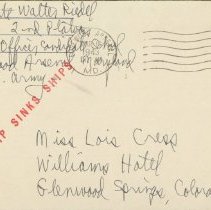 Walter Riedel
2nd Platoon
Officer Candidate
Arsenal Maryland
Army
MD.
P SINKS SHIPS
Miss Lois Cress
Williams Hotel
Glenwood Springs, Colora